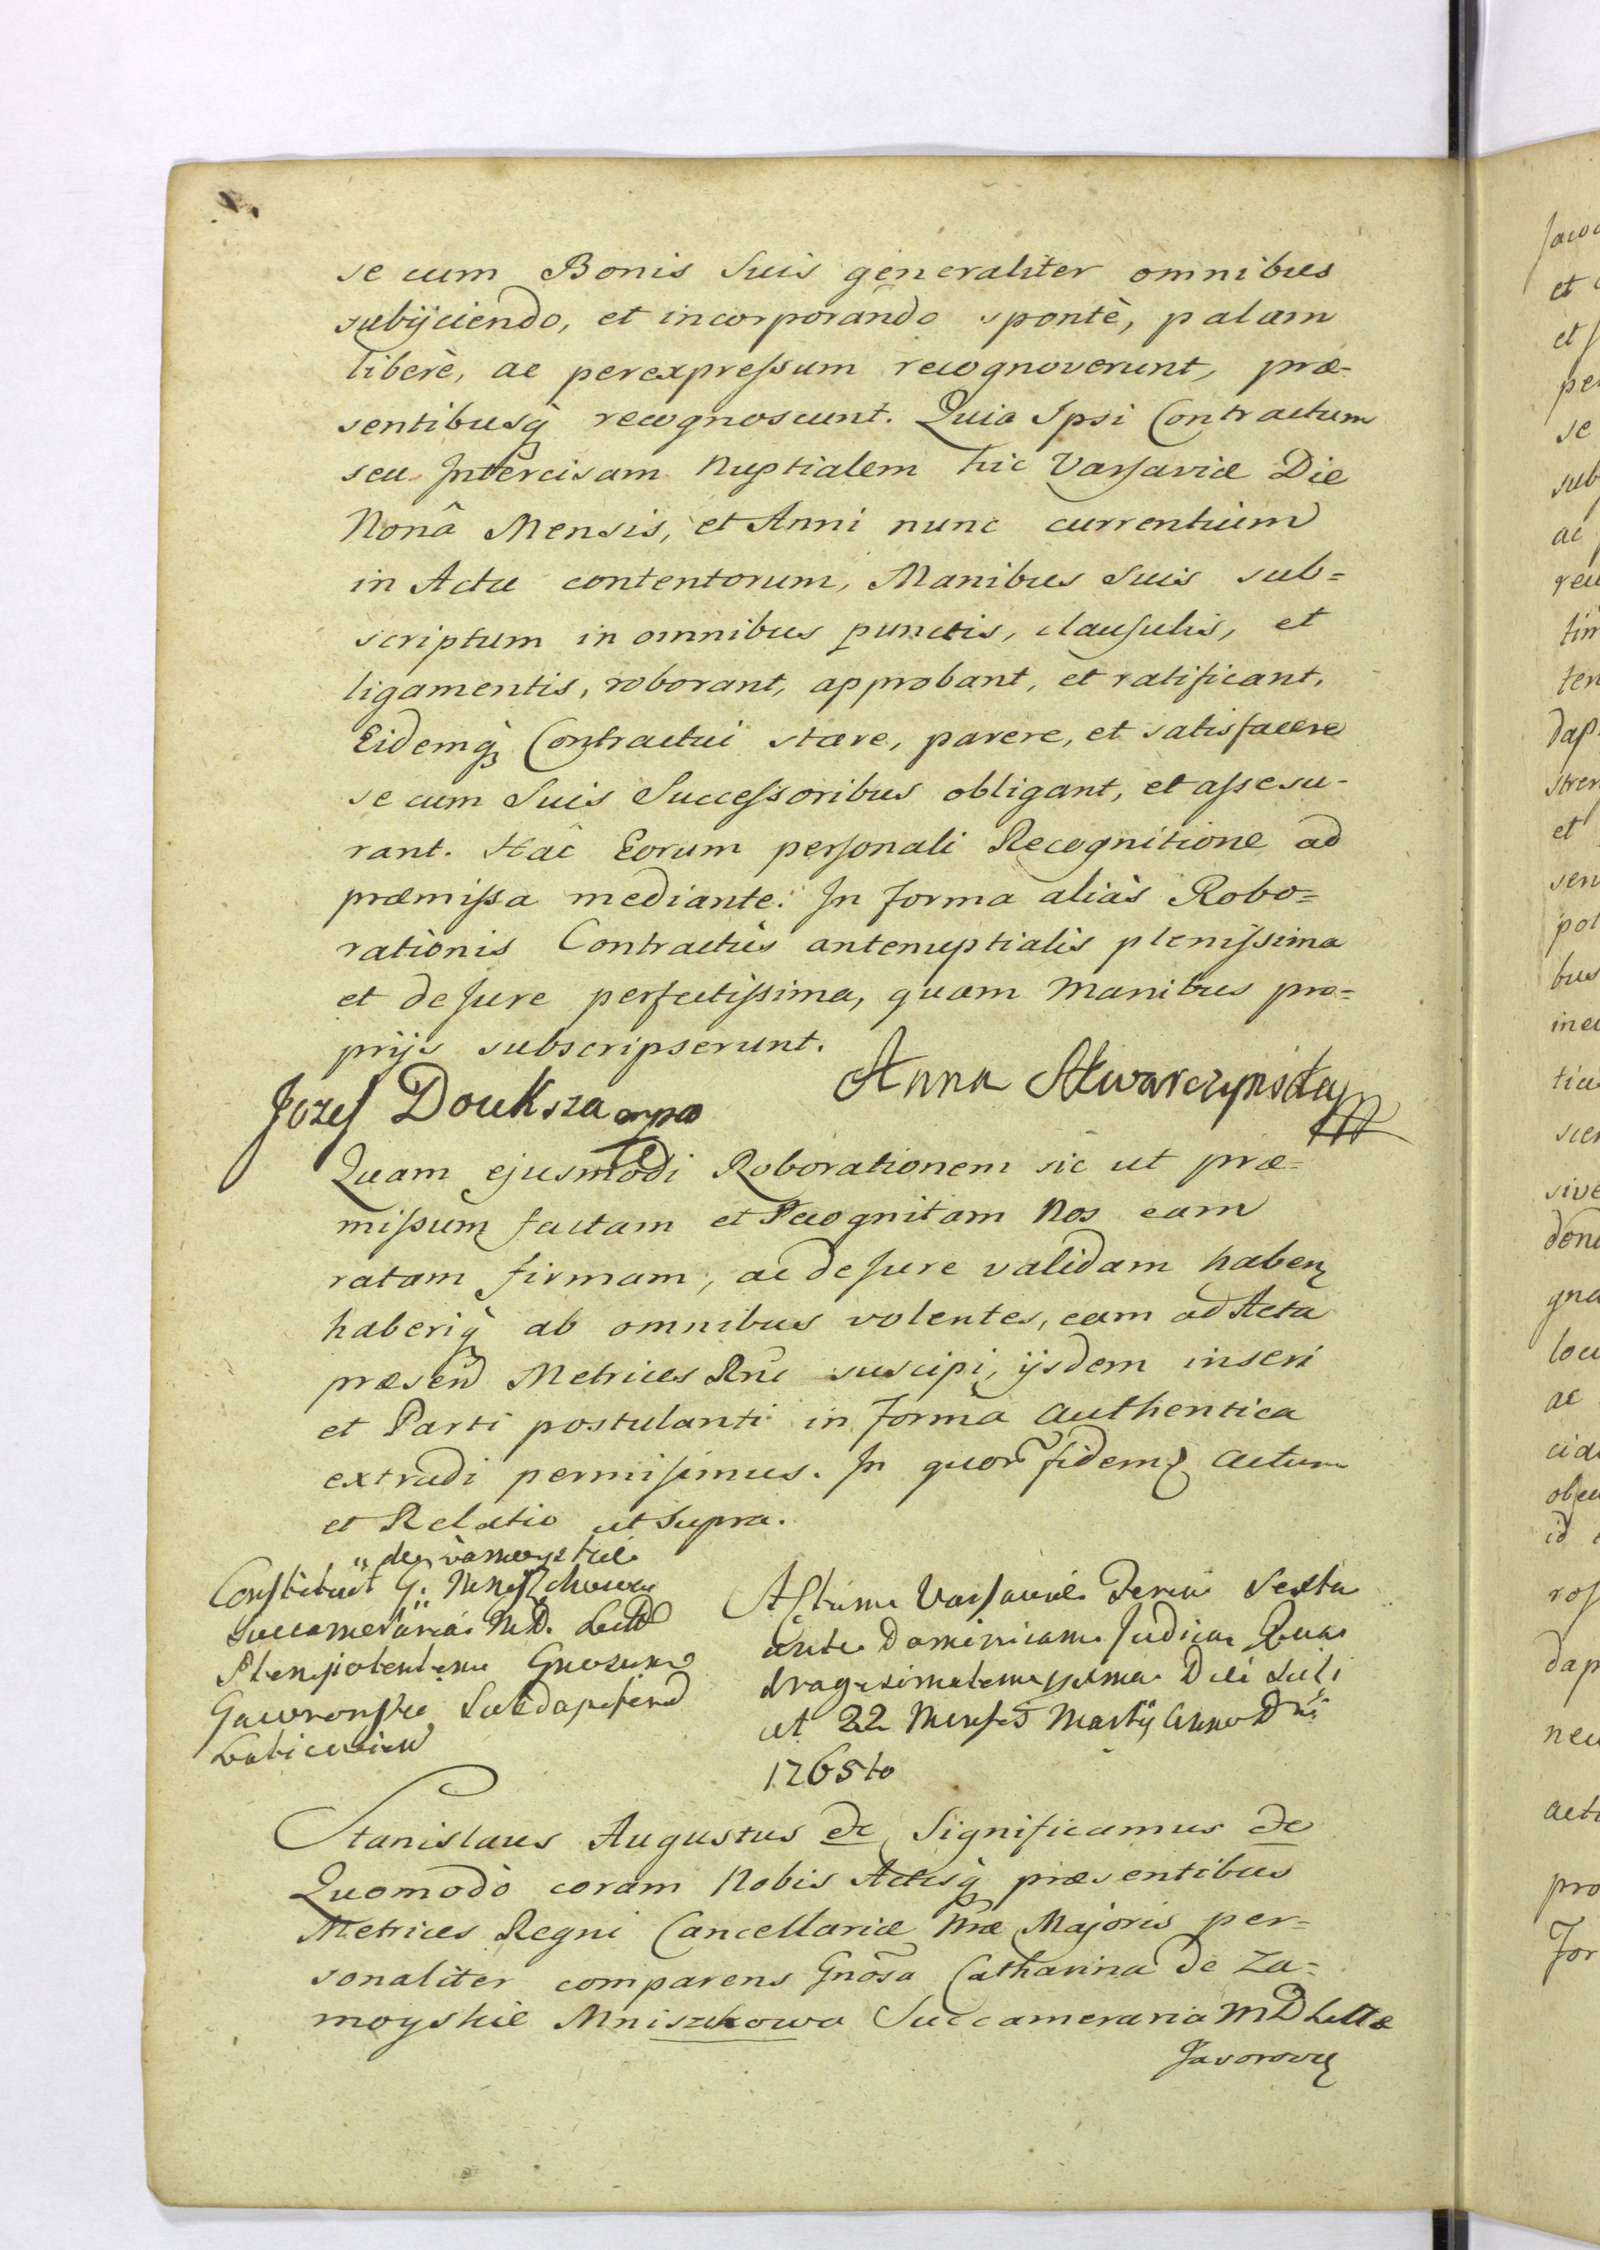 se cum Bonis Suis generaliter omnibus
subijciendo, et incorporando spontè, palam
liberè, ac per expreſsum recognoverunt, præ-
sentibusq; recognoscunt. Quia Ipsi Contractum
seu Intercisam Nuptialem hic Varſaviæ Die
Nonâ Mensis, et Anni nunc currentium
in Actu contentorum, Manibus Suis sub=
scriptum in omnibus punctis, clauſulis, et
ligamentis, roborant, approbant, et ratificant,
Eidemq; Contractui stare, parere, et satisfacere
se cum Suis Succeſsoribus obligant, et aſsecu-
rant. Hac Eorum perſonali Recognitione ad
præmiſsa mediante. In forma aliàs Robo=
rationis Contractûs antenuptialis pleniſsima
et de Jure perfectiſsima, quam Manibus pro=
prijs subscripserunt.
Jozef Doukſza mpp
Anna Skwarczynska
Quam ejusmodi Roborationem sic ut præ=
miſsum factam et Recognitam Nos eam
ratam firmam, ac de Jure validam haben
haberiq; ab omnibus volentes, eam ad Acta
præsen Metrices Rni suscipi, ijsdem inseri
et Parti postulanti in forma authentica
extradi permiſimus. In quor fidem Actum
et Relatio ut Supra.
de Zamoyskie
Conſtituit G. Mniſzchowa
Succameraria M.D. Litt
Plenipotentem Gnosum
Gawronſki Subdapiferum
Actum Varſaviæ Feria Sexta
ante Dominicam Judica Qua
dragesimalem ipsma Die scili
et 22 Menſis Martij Anno Dni
1765to
Stanislaus Augustus &c Significamus &c
Quomodò coram Nobis Actisq; præsentibus
Metrices Regni Cancellariæ Nræ Majoris per=
sonaliter comparens Gnosa Catharina de Za=
moyskie Mniszkowa Succameraria MD Littæ